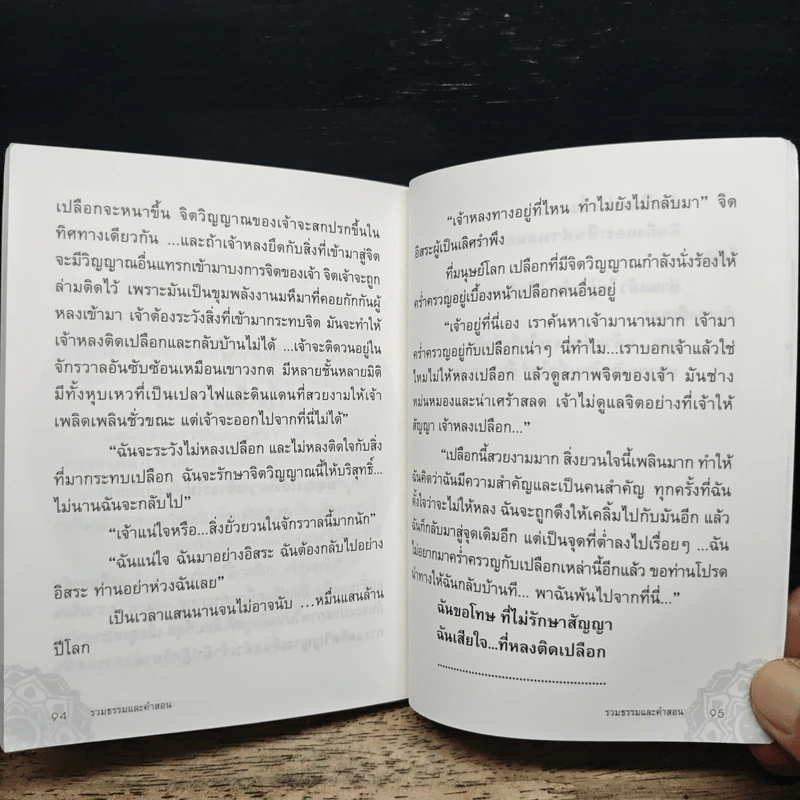 เปลือกจะหนาขึ้น จิตวิญญาณของเจ้าจะสกปรกขึ้นใน
ทิศทางเดียวกัน ...และถ้าเจ้าหลงยึดกับสิ่งที่เข้ามาสู่จิต
จะมีวิญญาณอื่นแทรกเข้ามาบงการจิตของเจ้า จิตเจ้าจะถูก
ล่ามติดไว้ เพราะมันเป็นขุมพลังงานมหึมาที่คอยกักกันผู้
หลงเข้ามา เจ้าต้องระวังสิ่งที่เข้ามากระทบจิต มันจะทำให้
เจ้าหลงติดเปลือกและกลับบ้านไม่ได้ ...เจ้าจะติดวนอยู่ใน
จักรวาลอันซับซ้อนเหมือนเขาวงกต มีหลายชั้นหลายมิติ
มีทั้งหุบเหวที่เป็นเปลวไฟและดินแดนที่สวยงามให้เจ้า
เพลิดเพลินชั่วขณะ แต่เจ้าจะออกไปจากที่นี่ไม่ได้"
"ฉันจะระวังไม่หลงเปลือก และไม่หลงติดใจกับสิ่ง
ที่มากระทบเปลือก ฉันจะรักษาจิตวิญญาณนี้ให้บริสุทธิ์...
ไม่นานฉันจะกลับไป"
"เจ้าแน่ใจหรือ...สิ่งยั่วยวนในจักรวาลนี้มากนัก"
"ฉันแน่ใจ ฉันมาอย่างอิสระ ฉันต้องกลับไปอย่าง
อิสระ ท่านอย่าห่วงฉันเลย"
เป็นเวลาแสนนานจนไม่อาจนับ ...หมื่นแสนล้าน
ปีโลก
94 รวมธรรมและคำสอน
"เจ้าหลงทางอยู่ที่ไหน ทำไมยังไม่กลับมา" จิต
อิสระผู้เป็นเลิศรำพึง
ที่มนุษย์โลก เปลือกที่มีจิตวิญญาณกำลังนั่งร้องไห้
คร่ำครวญอยู่เบื้องหน้าเปลือกคนอื่นอยู่
"เจ้าอยู่ที่นี่เอง เราค้นหาเจ้ามานานมาก เจ้ามา
คร่ำครวญอยู่กับเปลือกเน่าๆ นี่ทำไม...เราบอกเจ้าแล้วใช่
ไหมไม่ให้หลงเปลือก แล้วดูสภาพจิตของเจ้า มันช่าง
หม่นหมองและน่าเศร้าสลด เจ้าไม่ดูแลจิตอย่างที่เจ้าให้
สัญญา เจ้าหลงเปลือก..."
"เปลือกนี้สวยงามมาก สิ่งยวนใจนี้เพลินมาก ทำให้
ฉันคิดว่าฉันมีความสำคัญและเป็นคนสำคัญ ทุกครั้งที่ฉัน
ตั้งใจว่าจะไม่ให้หลง ฉันจะถูกดึงให้เคลิ้มไปกับมันอีก แล้ว
ฉันก็กลับมาสู่จุดเดิมอีก แต่เป็นจุดที่ต่ำลงไปเรื่อยๆ ...ฉัน
ไม่อยากมาคร่ำครวญกับเปลือกเหล่านี้อีกแล้ว ขอท่านโปรด
นำทางให้ฉันกลับบ้านที... พาฉันพ้นไปจากที่นี่..."
ฉันขอโทษ ที่ไม่รักษาสัญญา
ฉันเสียใจ...ที่หลงติดเปลือก
..........................................
รวมธรรมและคำสอน 95